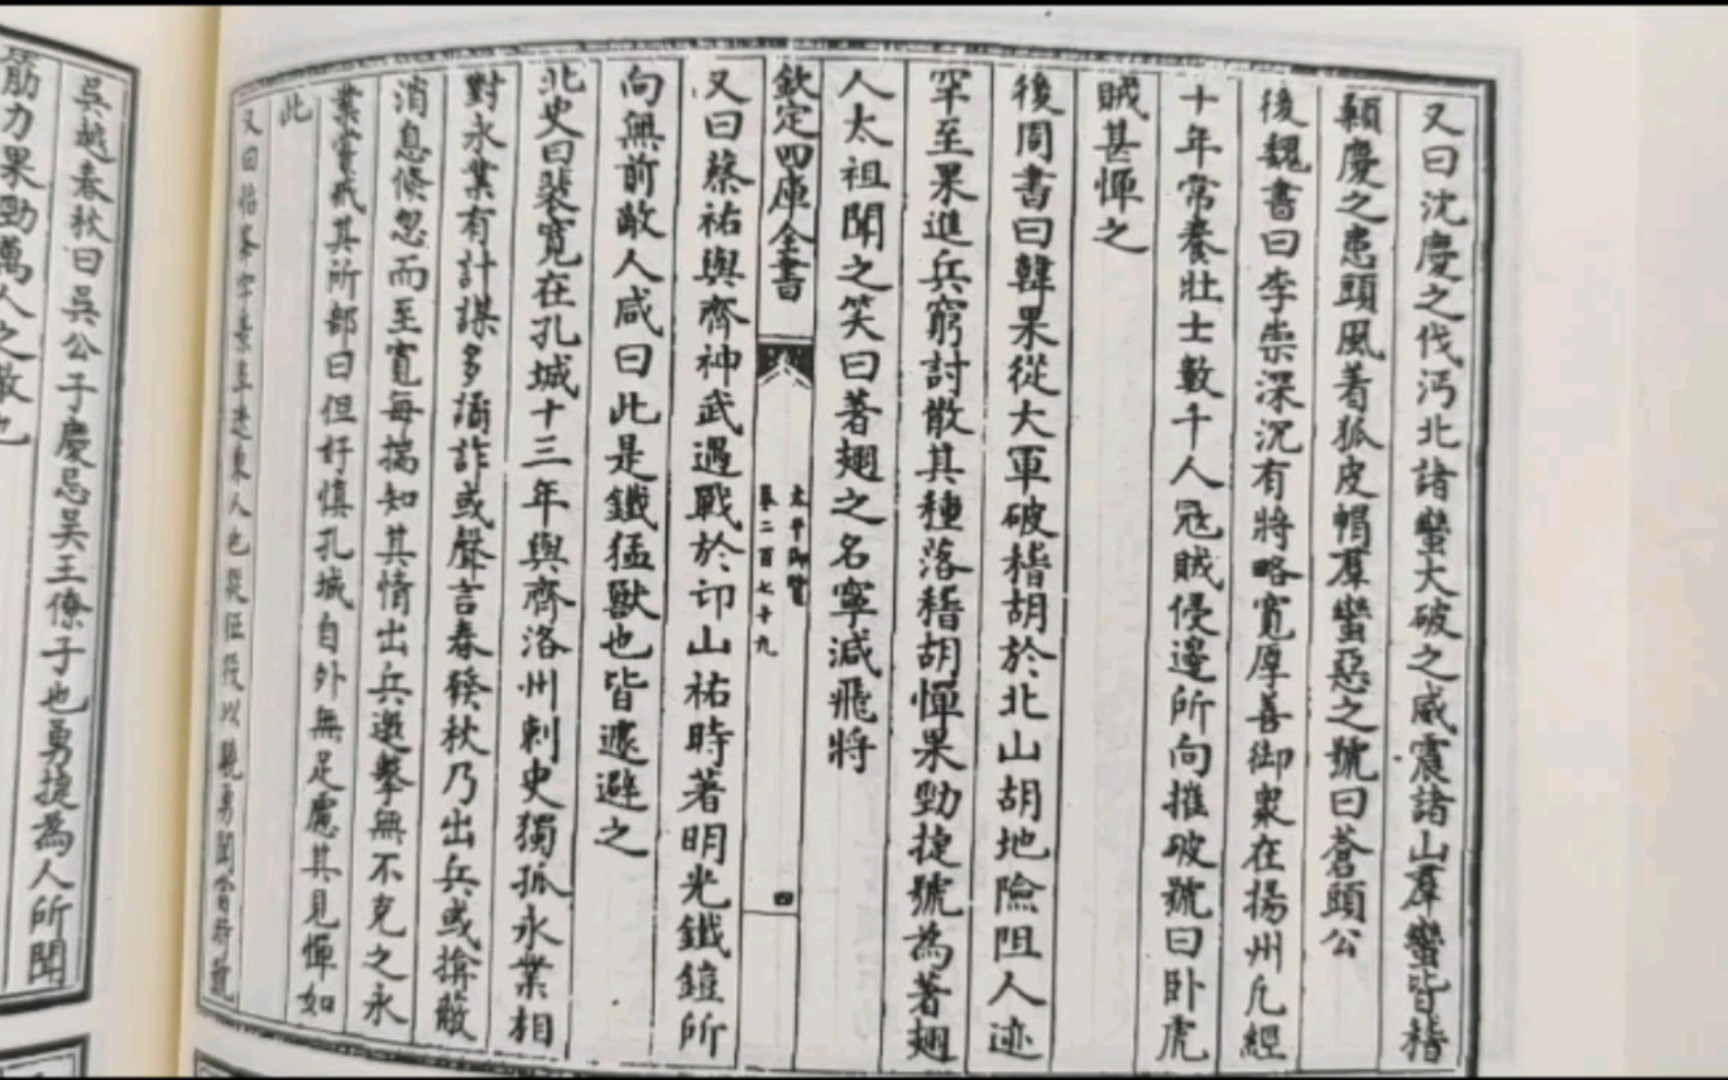 又曰沈慶之伐沔北諸蠻大破之威震諸山羣蠻皆稽
顙慶之患頭風着狐皮帽羣蠻惡之號曰蒼頭公
後魏書曰李崇深沉有將略寛厚善御衆在揚州凡經
十年常養壯士數千人冦賊侵邊所向摧破號曰卧虎
賊甚憚之
後周書曰韓果從大軍破稽胡於北山胡地險阻人迹
罕至果進兵窮討散其種落稽胡憚果勁捷號為著翅
人太祖聞之笑曰著翅之名寧減飛將
欽定四庫全書
太平御覽
卷二百七十九
四
又曰蔡祐與齊神武遇戰於邙山祐時著明光鐵鎧所
向無前敵人咸曰此是鐵猛獸也皆遽避之
北史曰裴寛在孔城十三年與齊洛州刺史獨孤永業相
對永業有計謀多譎詐或聲言春發秋乃出兵或掩蔽
消息倐忽而至寛每揣知其情出兵邀擊無不克之永
業嘗戒其所部曰但好慎孔城自外無足慮其見憚如
此
吳越春秋曰吳公子慶忌吳王僚子也勇捷為人所聞
筋力果勁萬人之敵也